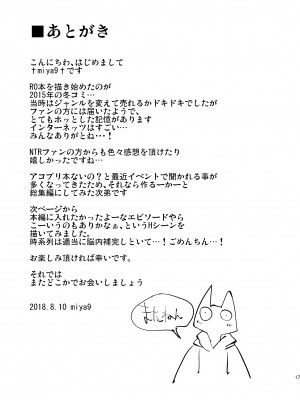 ■あとがき
こんにちわ、はじめまして
†miya9†です
RO本を描き始めたのが
2015年の冬コミ…
当時はジャンルを変えて売れるかドキドキでしたが
ファンの方には届いたようで、
とてもホッとした記憶があります
インターネッツはすごい…
みんなありがとね・・・!
NTRファンの方からも色々感想を頂けたり
嬉しかったですね…
アコプリ本ないの?と最近イベントで聞かれる事が
多くなってきたため、それなら作るーかーと
総集編にしてみた次第です
次ページから
本編に入れたかったよーなエピソードやら
こーいうのもありかなぁ、というHシーンを
描いてみました。
時系列は適当に脳内補完しといて…!ごめんちん…!
お楽しみ頂ければ幸いです。
それでは
またどこかでお会いしましょう
2018.8.10 miya9
またねん
17